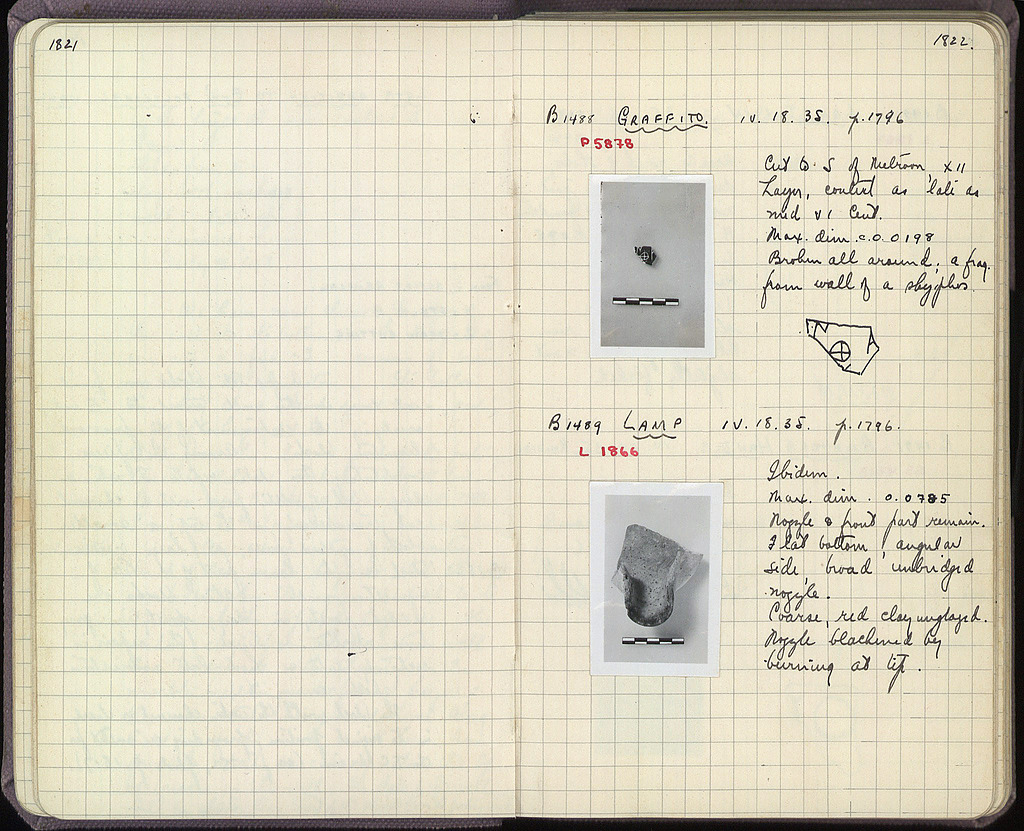 1821
1822.
B1488 GRAFFITO. IV. 18. 35. p.1796
P 5878
Cut to S of Metroon, XII
Layer, context as late as
mid VI Cent.
Max. dim. c.0.0198
Broken all around; a frag.
from wall of a skyphos.
N A
B1489 LAMP IV. 18. 35. p.1796.
L 1866
Ibidem.
Max. dim. 0.0785
Nozzle & front part remain.
Flat bottom, angular
side, broad unbridged
nozzle.
Coarse, red clay unglazed.
Nozzle blackened by
burning at tip.